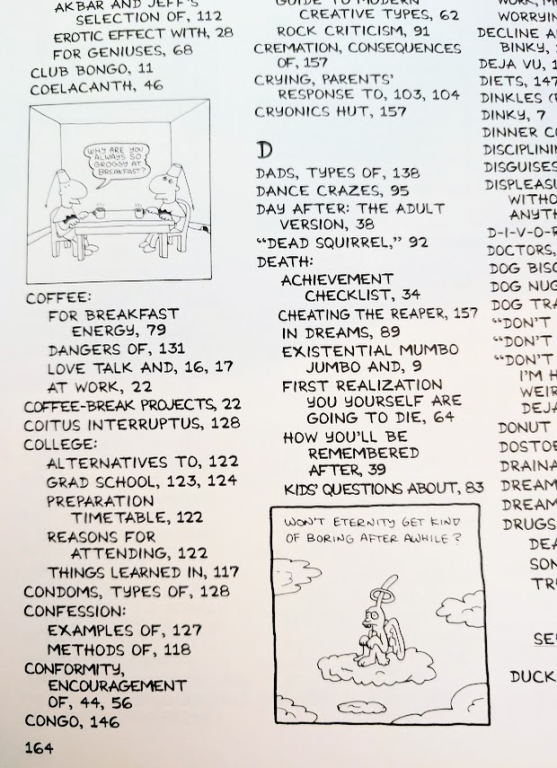 AKBAR AND JEFF'S
SELECTION OF, 112
EROTIC EFFECT WITH, 28
FOR GENIUSES, 68
CLUB BONGO, 11
COELACANTH, 46
WHY ARE YOU
ALWAYS SO
GROGGY AT
BREAKFAST?
COFFEE:
FOR BREAKFAST
ENERGY, 79
DANGERS OF, 131
LOVE TALK AND, 16, 17
AT WORK, 22
COFFEE-BREAK PROJECTS, 22
COITUS INTERRUPTUS, 128
COLLEGE:
ALTERNATIVES TO, 122
GRAD SCHOOL, 123, 124
PREPARATION
TIMETABLE, 122
REASONS FOR
ATTENDING, 122
THINGS LEARNED IN, 117
CONDOMS, TYPES OF, 128
CONFESSION:
EXAMPLES OF, 127
METHODS OF, 118
CONFORMITY,
ENCOURAGEMENT
OF, 44, 56
CONGO, 146
164
GUIDE TO MODERN
CREATIVE TYPES, 62
ROCK CRITICISM, 91
CREMATION, CONSEQUENCES
OF, 157
CRYING, PARENTS'
RESPONSE TO, 103, 104
CRYONICS HUT, 157
D
DADS, TYPES OF, 138
DANCE CRAZES, 95
DAY AFTER: THE ADULT
VERSION, 38
"DEAD SQUIRREL," 92
DEATH:
ACHIEVEMENT
CHECKLIST, 34
CHEATING THE REAPER, 157
IN DREAMS, 89
EXISTENTIAL MUMBO
JUMBO AND, 9
FIRST REALIZATION
YOU YOURSELF ARE
GOING TO DIE, 64
HOW YOU'LL BE
REMEMBERED
AFTER, 39
KIDS' QUESTIONS ABOUT, 83
WON'T ETERNITY GET KIND
OF BORING AFTER AWHILE?
WORRYIN
DECLINE A
BINKY,
DEJA VU, 1
DIETS, 147
DINKLES (
DINKY, 7
DINNER CO
DISCIPLININ
DISGUISES
DISPLEASI
WITHO
ANYTH
D-I-V-O-R
DOCTORS,
DOG BISC
DOG NUG
DOG TRA
"DON'T
"DON'T
"DON'T
I'M H
WEIR
DEJA
DONUT
DOSTOE
DRAINA
DREAM
DREAM
DRUGS
DEA
SON
TR
SE
DUCK